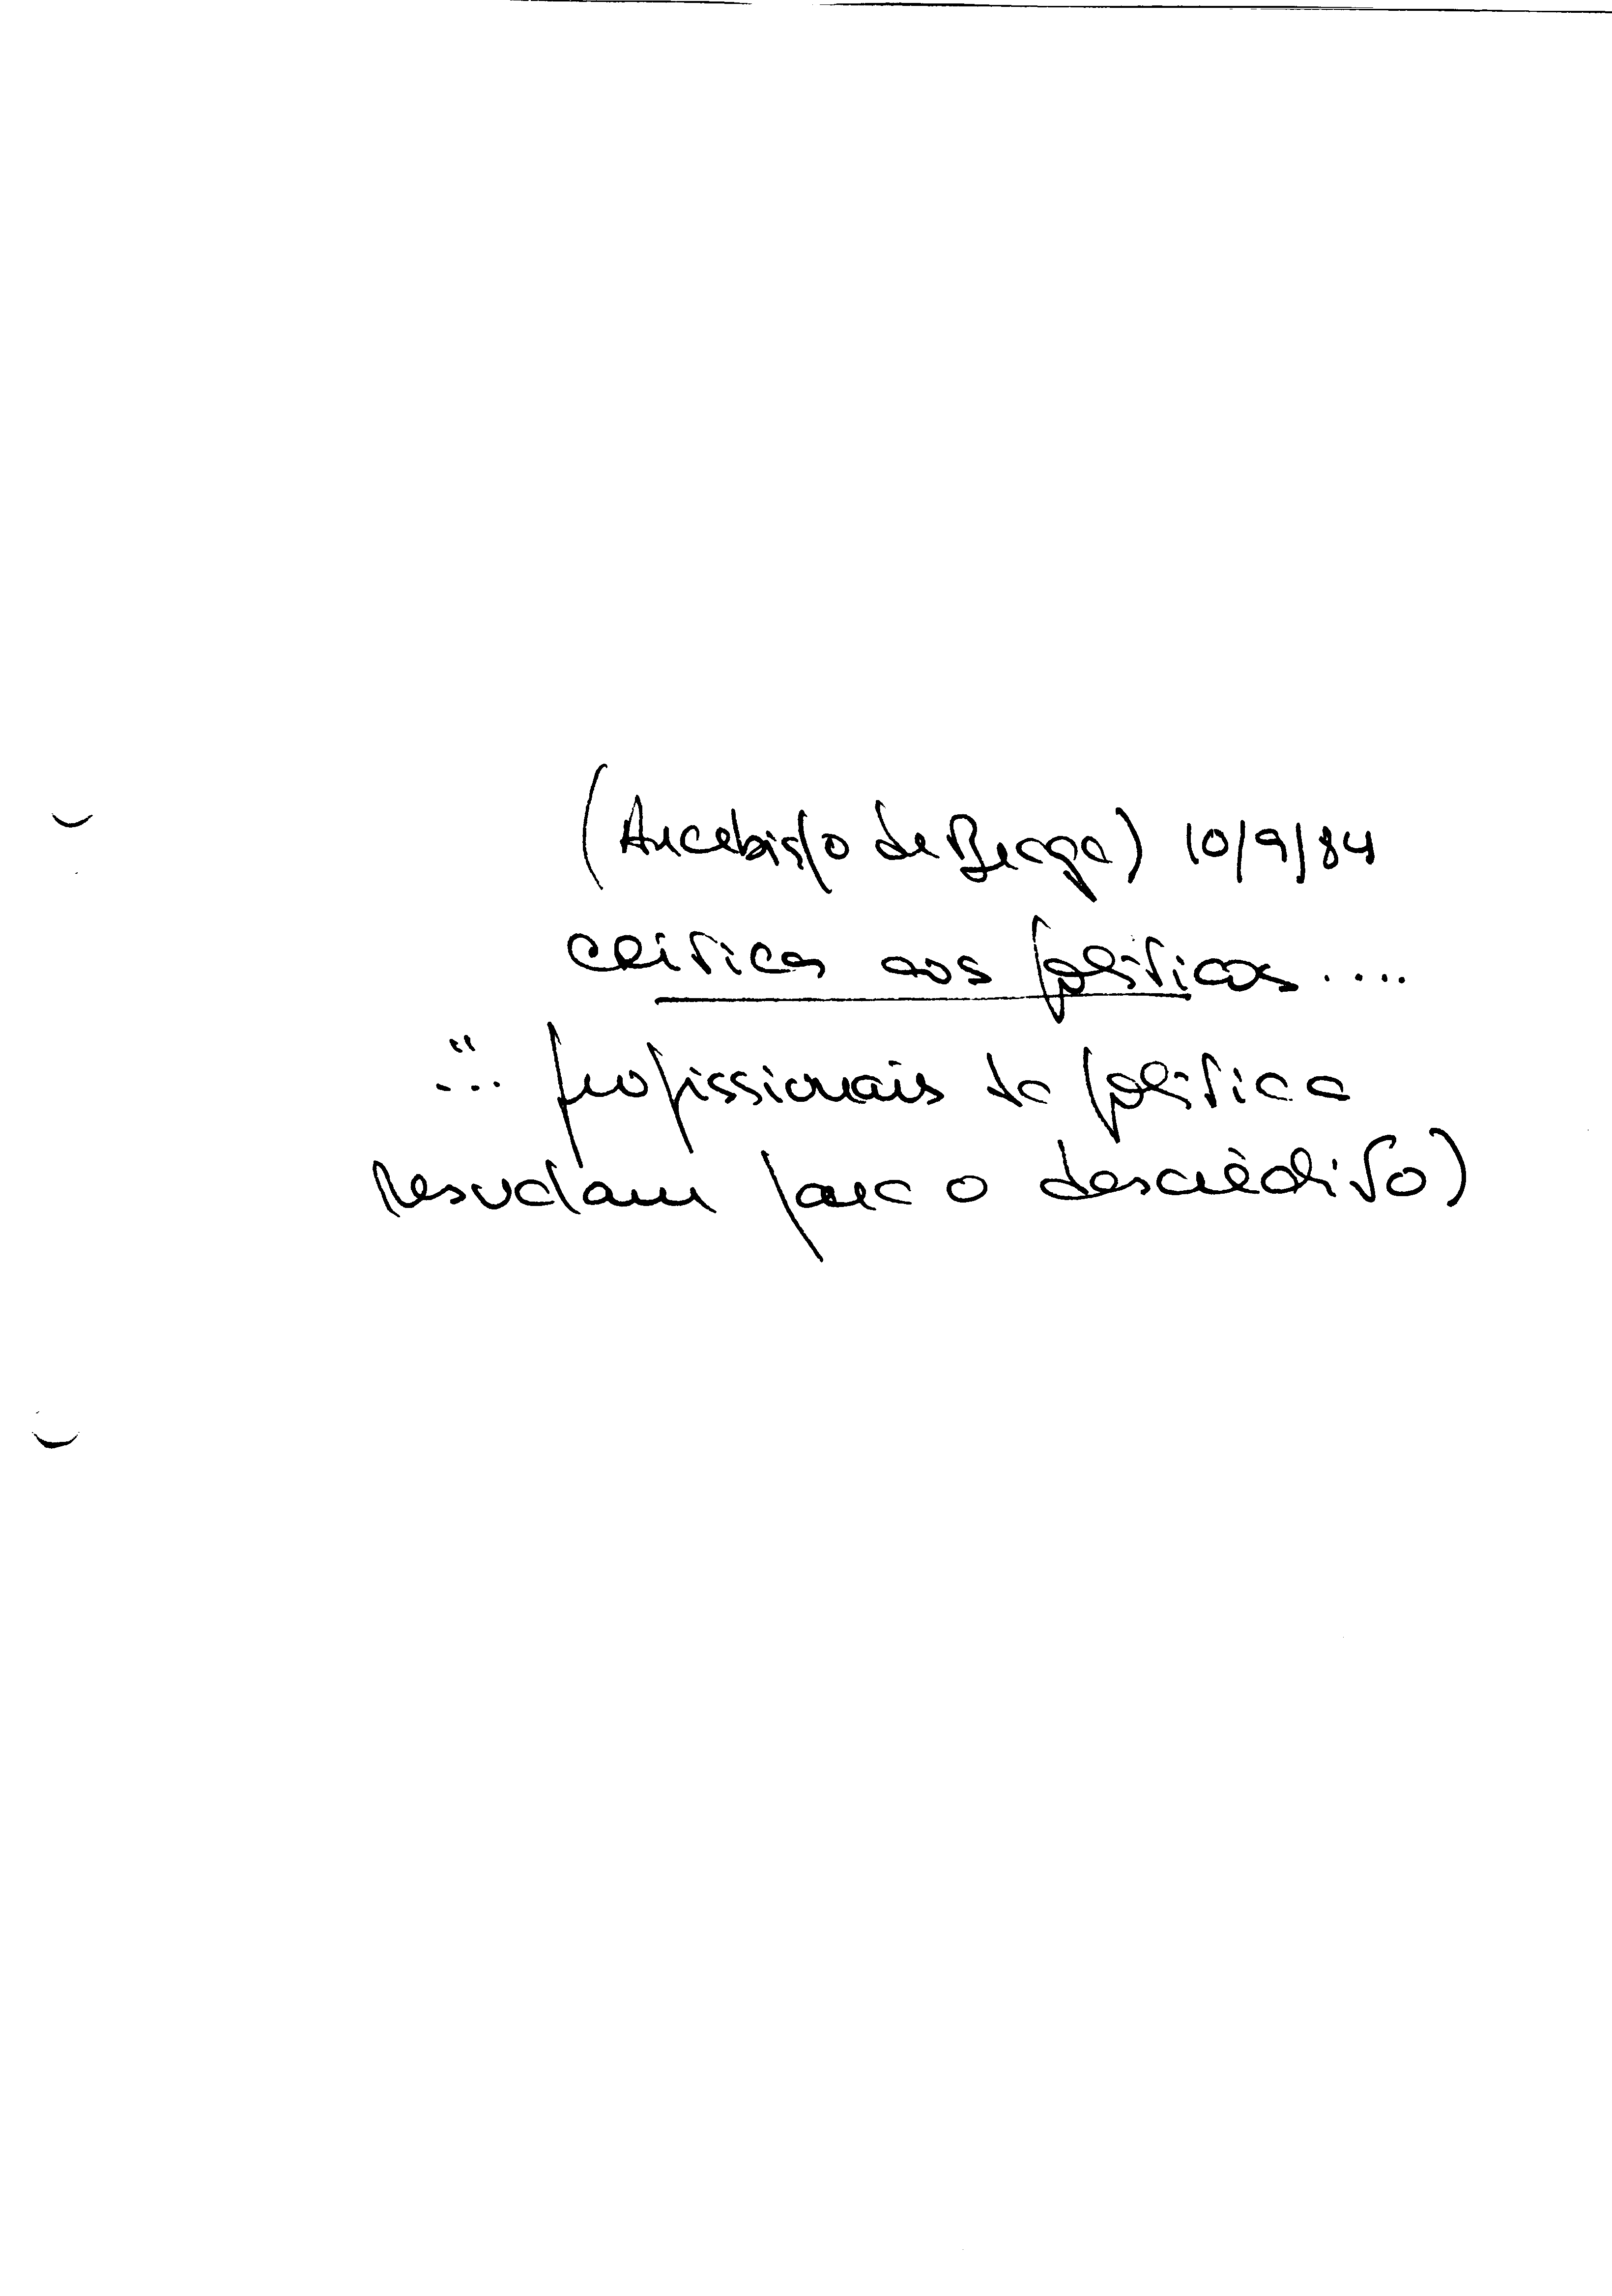 (Arcebispo de Braga) 10/9/84
críticas aos políticos....
"... profissionais da política
resvalam para o descrédito)